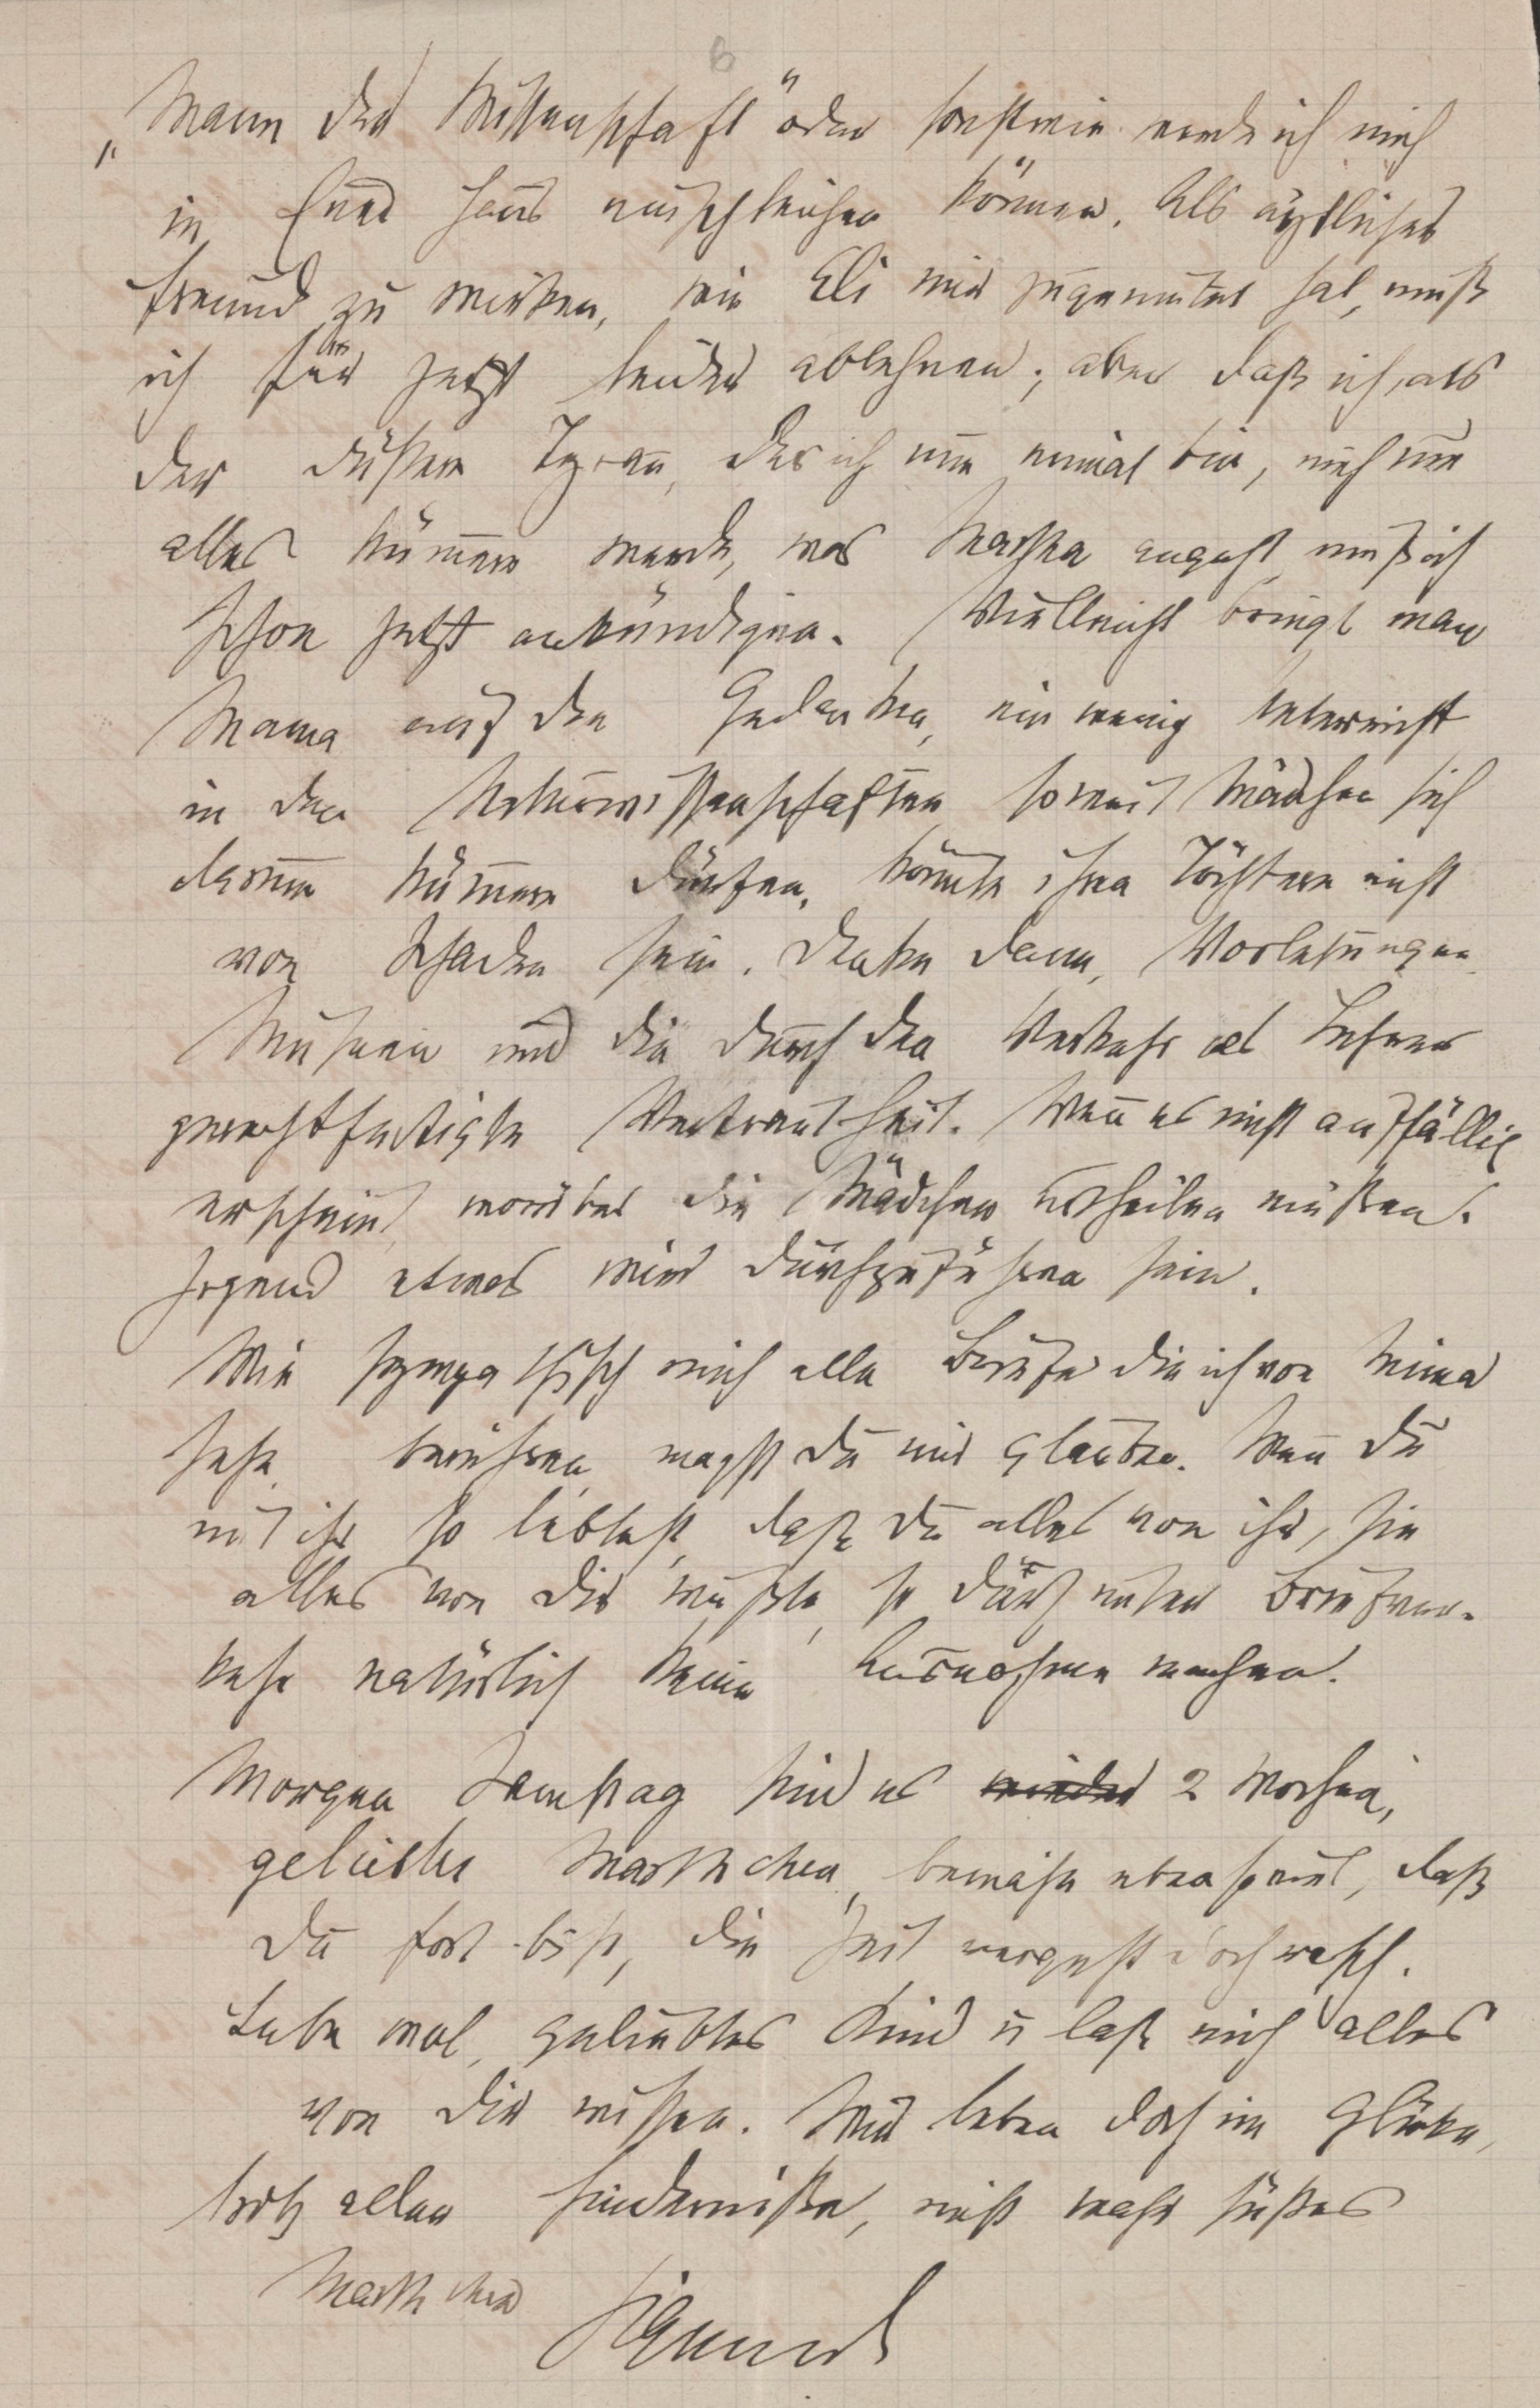 6
„Mann der Wissenschaft" oder sonstwie werde ich mich
in Euer Haus einschleichen können. Als ärztlicher
Freund zu wirken, wie Eli mir zugemutet hat, muß
ich für's jetzt leider ablehnen; aber daß ich, als
der düstere Tyrann, der ich nun einmal bin, mich um
alles kümmern werde, was Martha angeht, muß ich
schon jetzt ankündigen. Vielleicht bringt man
Mama auf den Gedanken, ein wenig Unterricht
in den Naturwissenschaften, soweit Mädchen sich
darum kümmern dürfen, könnte ihren Töchtern nicht
von Schaden sein. Denke dann, Vorlesungen
Museen und die durch den Verkehr als Lehrer
gerechtfertigte Vertrautheit. Wenn es nicht auffällig
erscheint, worüber die Mädchen urtheilen müßen.
Irgend etwas wird durchzuführen sein.
Wie sympathisch mich alle Briefe die ich von Minna
sehe, berühren, magst Du mir glauben. Wenn Du
mit ihr so lebtest, daß Du alles von ihr, sie
alles von Dir wüßte, so darf unser Briefver-
kehr natürlich keine Ausnahme machen.
Morgen Samstag sind es wieder 2 Wochen,
geliebtes Marthchen, beinahe ebensoviel, daß
Du fort bist, die Zeit vergeht doch rasch.
Lebe wol, geliebtes Kind u laß mich alles
von Dir wissen. Wir leben doch im Glücke,
trotz allen Hindernißen, nicht wahr süßes
Marthchen
Sigmund